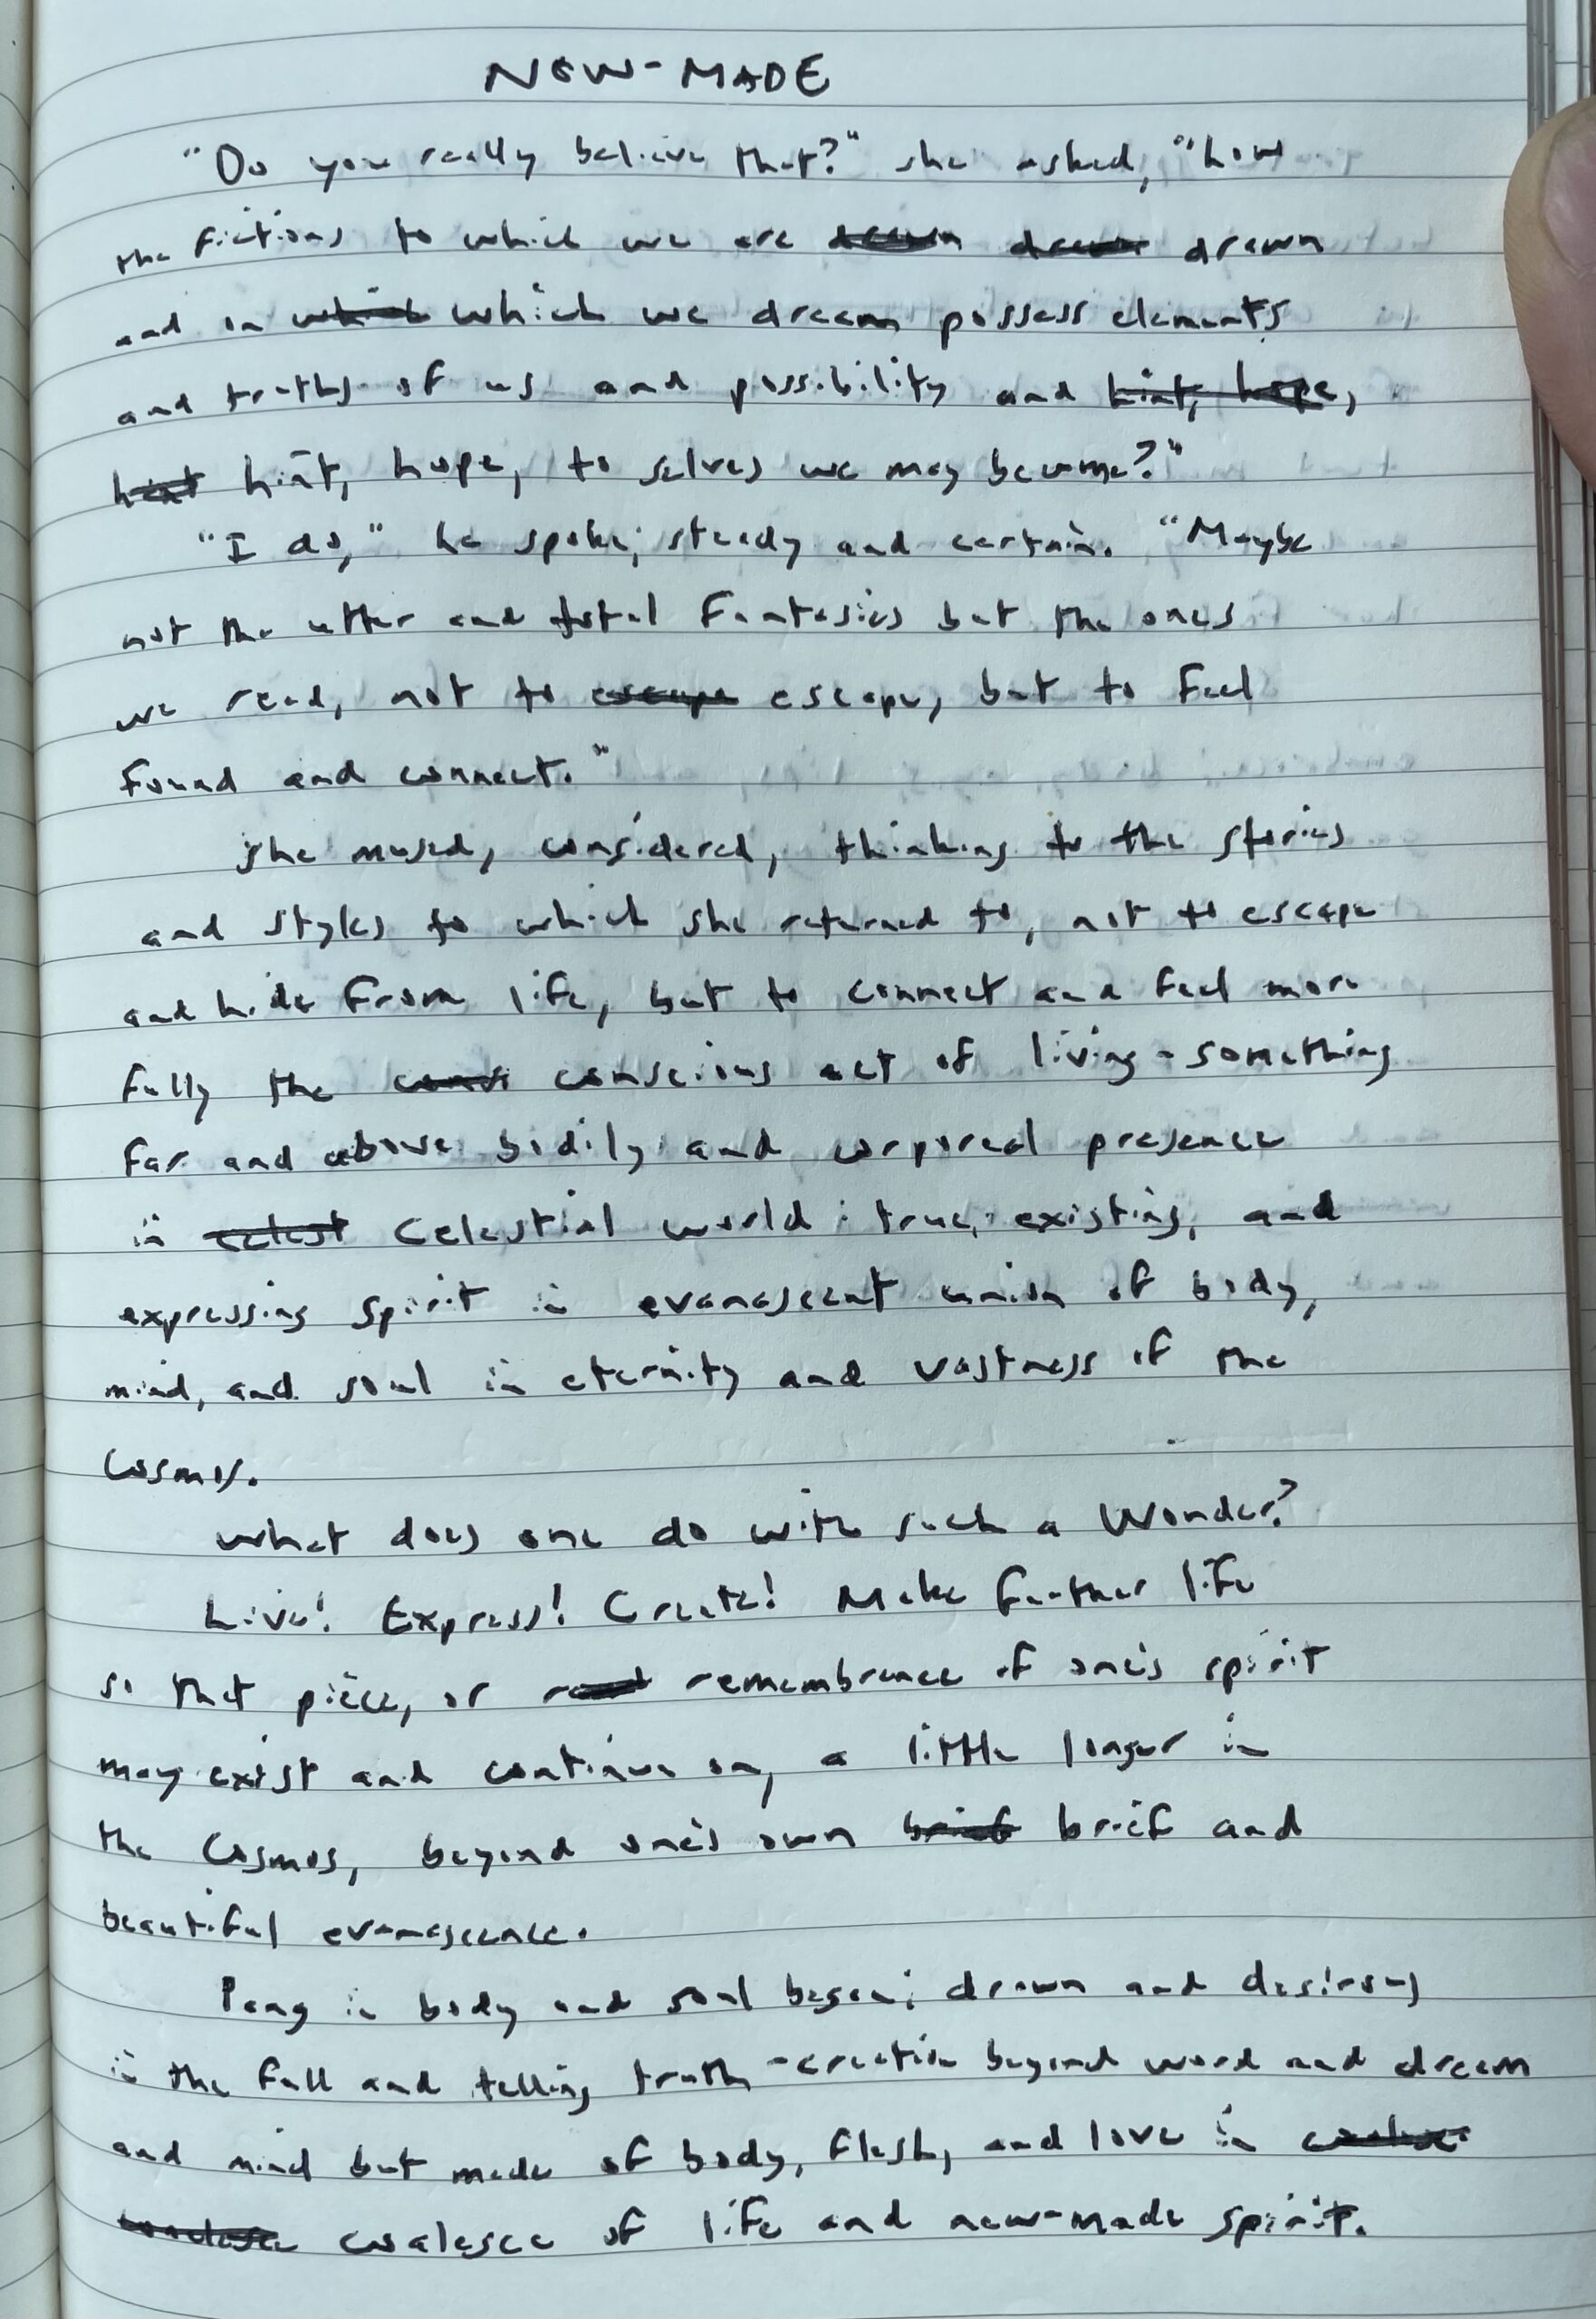 NEW-MADE
"Do you really believe that?" she asked, "how
the fictions to which we are drawn
and in which we dream possess elements
and truths of us and possibility and
hint, hope, to selves we may become?"
"I do," he spoke, steady and certain. "Maybe
not the utter and total fantasies but the ones
we read, not to escape, but to feel
found and connect."
She mused, considered, thinking to the stories
and styles to which she returned to, not to escape
and hide from life, but to connect and feel more
fully the conscious act of living - something
far and above bodily and corporeal presence
in celestial world: true, existing, and
expressing spirit in evanescent union of body,
mind, and soul in eternity and vastness of the
Cosmos.
What does one do with such a Wonder?
Live! Express! Create! Make further life
so that piece, or remembrance of one's spirit
may exist and continue on, a little longer in
the Cosmos, beyond one's own brief and
beautiful evanescence.
Pang in body and soul began; drawn and desirous
in the full and telling truth - creation beyond word and dream
and mind but made of body, flesh, and love in
coalesce of life and new-made spirit.